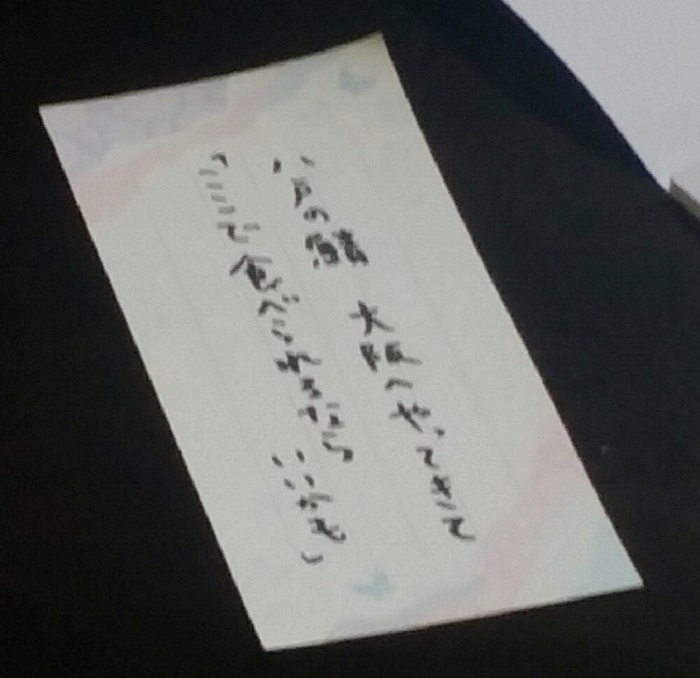 八戸の鯖 大阪へやってきて
「ここで食べられるなら いいかも」